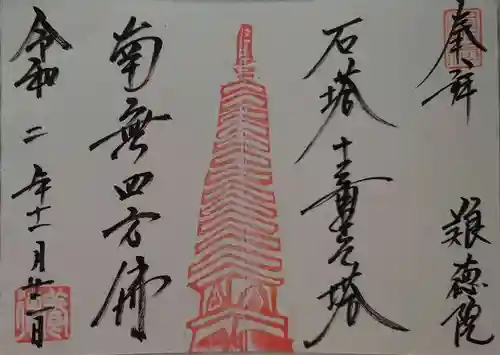 奉拝
難徳院
石塔
十三重石塔
南無四方佛
令和二年十一月廿二日